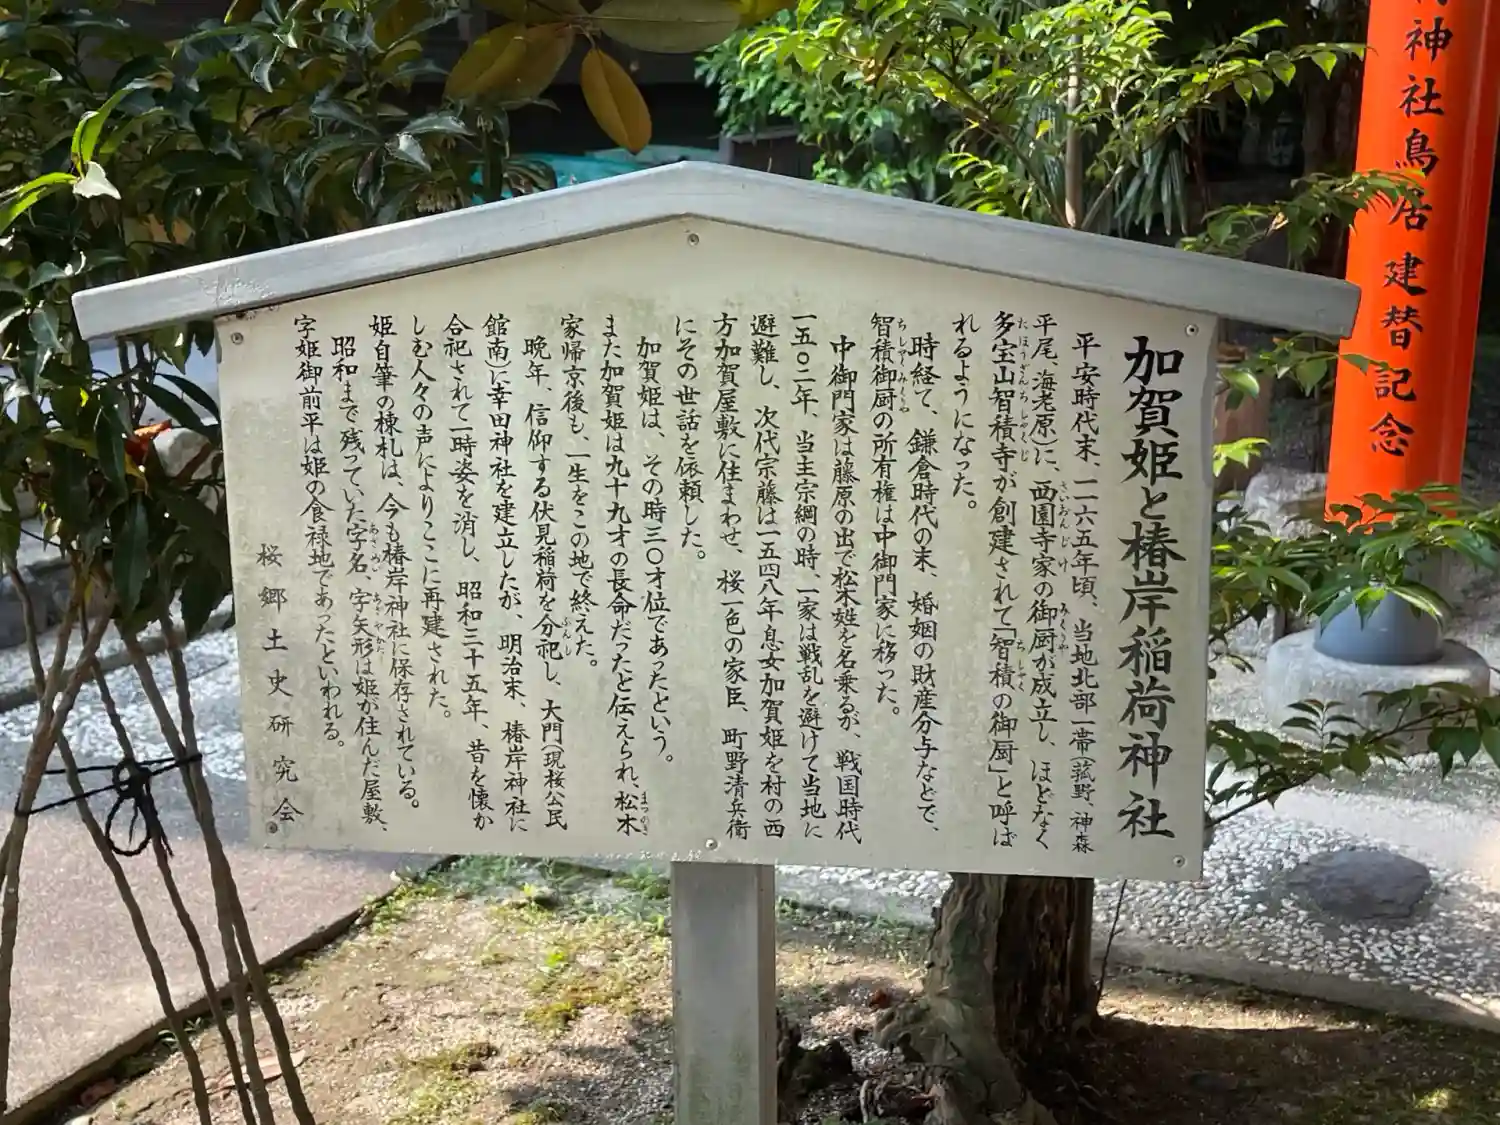 加賀姫と椿岸稲荷神社
平安時代末、一二六五年頃、当地北部一帯(菰野、神森
平尾、海老原)に、西園寺家の御厨が成立し、ほどなく
さいおんじ け みくりや
多宝山智積寺が創建されて「智積の御厨」と呼ば
たほうざんちしゃくじ ちしゃく
れるようになった。
時経て、鎌倉時代の末、婚姻の財産分与などで、
智積御厨の所有権は中御門家に移った。
ちしゃくみくりや
中御門家は藤原の出で松木姓を名乗るが、戦国時代
一五〇二年、当主宗綱の時、一家は戦乱を避けて当地に
避難し、次代宗藤は一五四八年息女加賀姫を村の西
方加賀屋敷に住まわせ、桜一色の家臣、町野清兵衛
にその世話を依頼した。
加賀姫は、その時三〇才位であったという。
また加賀姫は九十九才の長命だったと伝えられ、松木
まつのき
家帰京後も、一生をこの地で終えた。
晩年、信仰する伏見稲荷を分祀し、大門(現桜公民
ぶんし
館南)に幸田神社を建立したが、明治末、椿岸神社に
合祀されて一時姿を消し、昭和三十五年、昔を懐か
しむ人々の声によりここに再建された。
姫自筆の棟札は、今も椿岸神社に保存されている。
昭和まで残っていた字名、字矢形は姫が住んだ屋敷、
あざめい あざやかた
字姫御前平は姫の食禄地であったといわれる。
桜郷土史研究会
神社鳥居建替記念